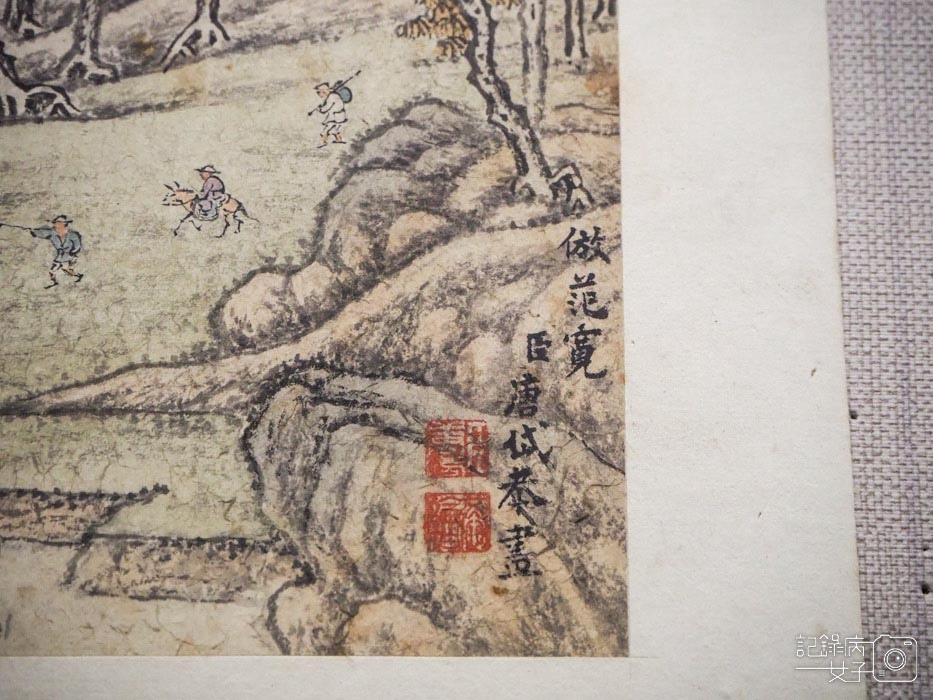 倣范寬
臣唐岱恭畫
記錄病
女子